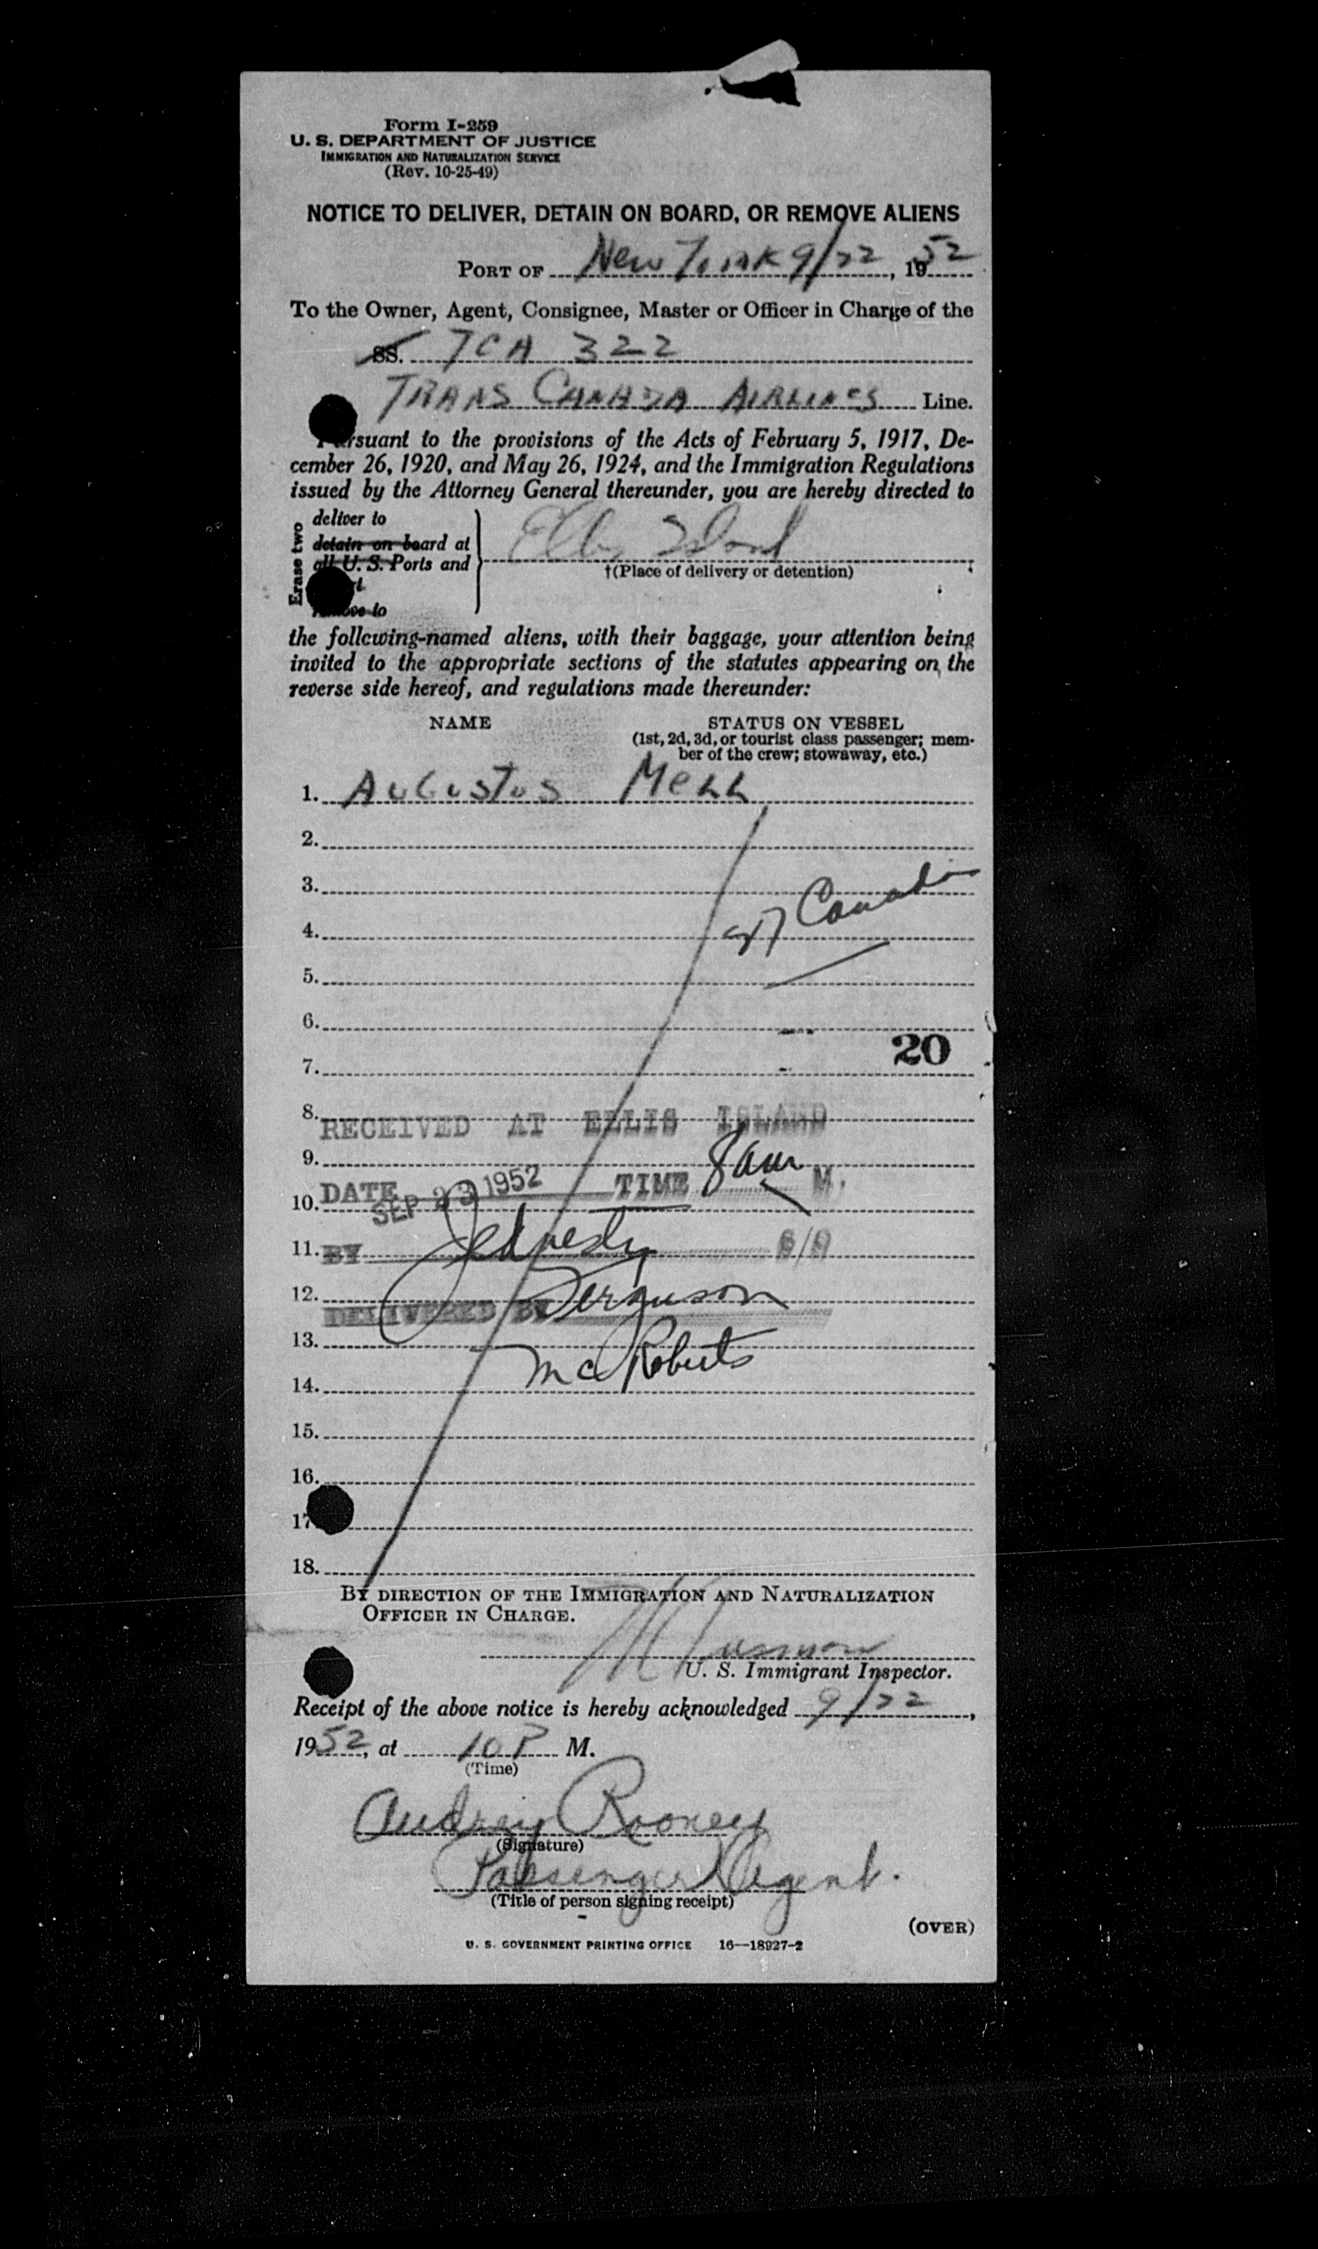 Form I-259
U. S. DEPARTMENT OF JUSTICE
IMMIGRATION AND NATURALIZATION SERVICE
(Rev. 10-25-49)
NOTICE TO DELIVER, DETAIN ON BOARD, OR REMOVE ALIENS
PORT OF New York 9/22, 1952
To the Owner, Agent, Consignee, Master or Officer in Charge of the
SS. TCA 322
TRANS CANADA AIRLINES Line.
Pursuant to the provisions of the Acts of February 5, 1917, De-
cember 26, 1920, and May 26, 1924, and the Immigration Regulations
issued by the Attorney General thereunder, you are hereby directed to
Erase two
deliver to
detain on board at
all U. S. Ports and
remove to
Ellis Island
†(Place of delivery or detention) ;
the following-named aliens, with their baggage, your attention being
invited to the appropriate sections of the statutes appearing on the
reverse side hereof, and regulations made thereunder:
NAME STATUS ON VESSEL
(1st, 2d, 3d, or tourist class passenger; mem-
ber of the crew; stowaway, etc.)
1. AUGUSTUS MELL
2.
3. Canadian
4. 27
5.
6.
20
7.
8.
RECEIVED AT ELLIS ISLAND
9.
DATE SEP 23 1952 TIME 8 am M.
10.
11. BY
12. Ferguson
DELIVERED BY
13.
McRoberts
14.
15.
16.
17.
18.
BY DIRECTION OF THE IMMIGRATION AND NATURALIZATION
OFFICER IN CHARGE.
U. S. Immigrant Inspector.
Receipt of the above notice is hereby acknowledged 9/22,
1952, at 10 P M.
(Time)
Audrey Rooney
(Signature)
Passenger Agent.
(Title of person signing receipt)
(OVER)
U. S. GOVERNMENT PRINTING OFFICE 16—18927-2